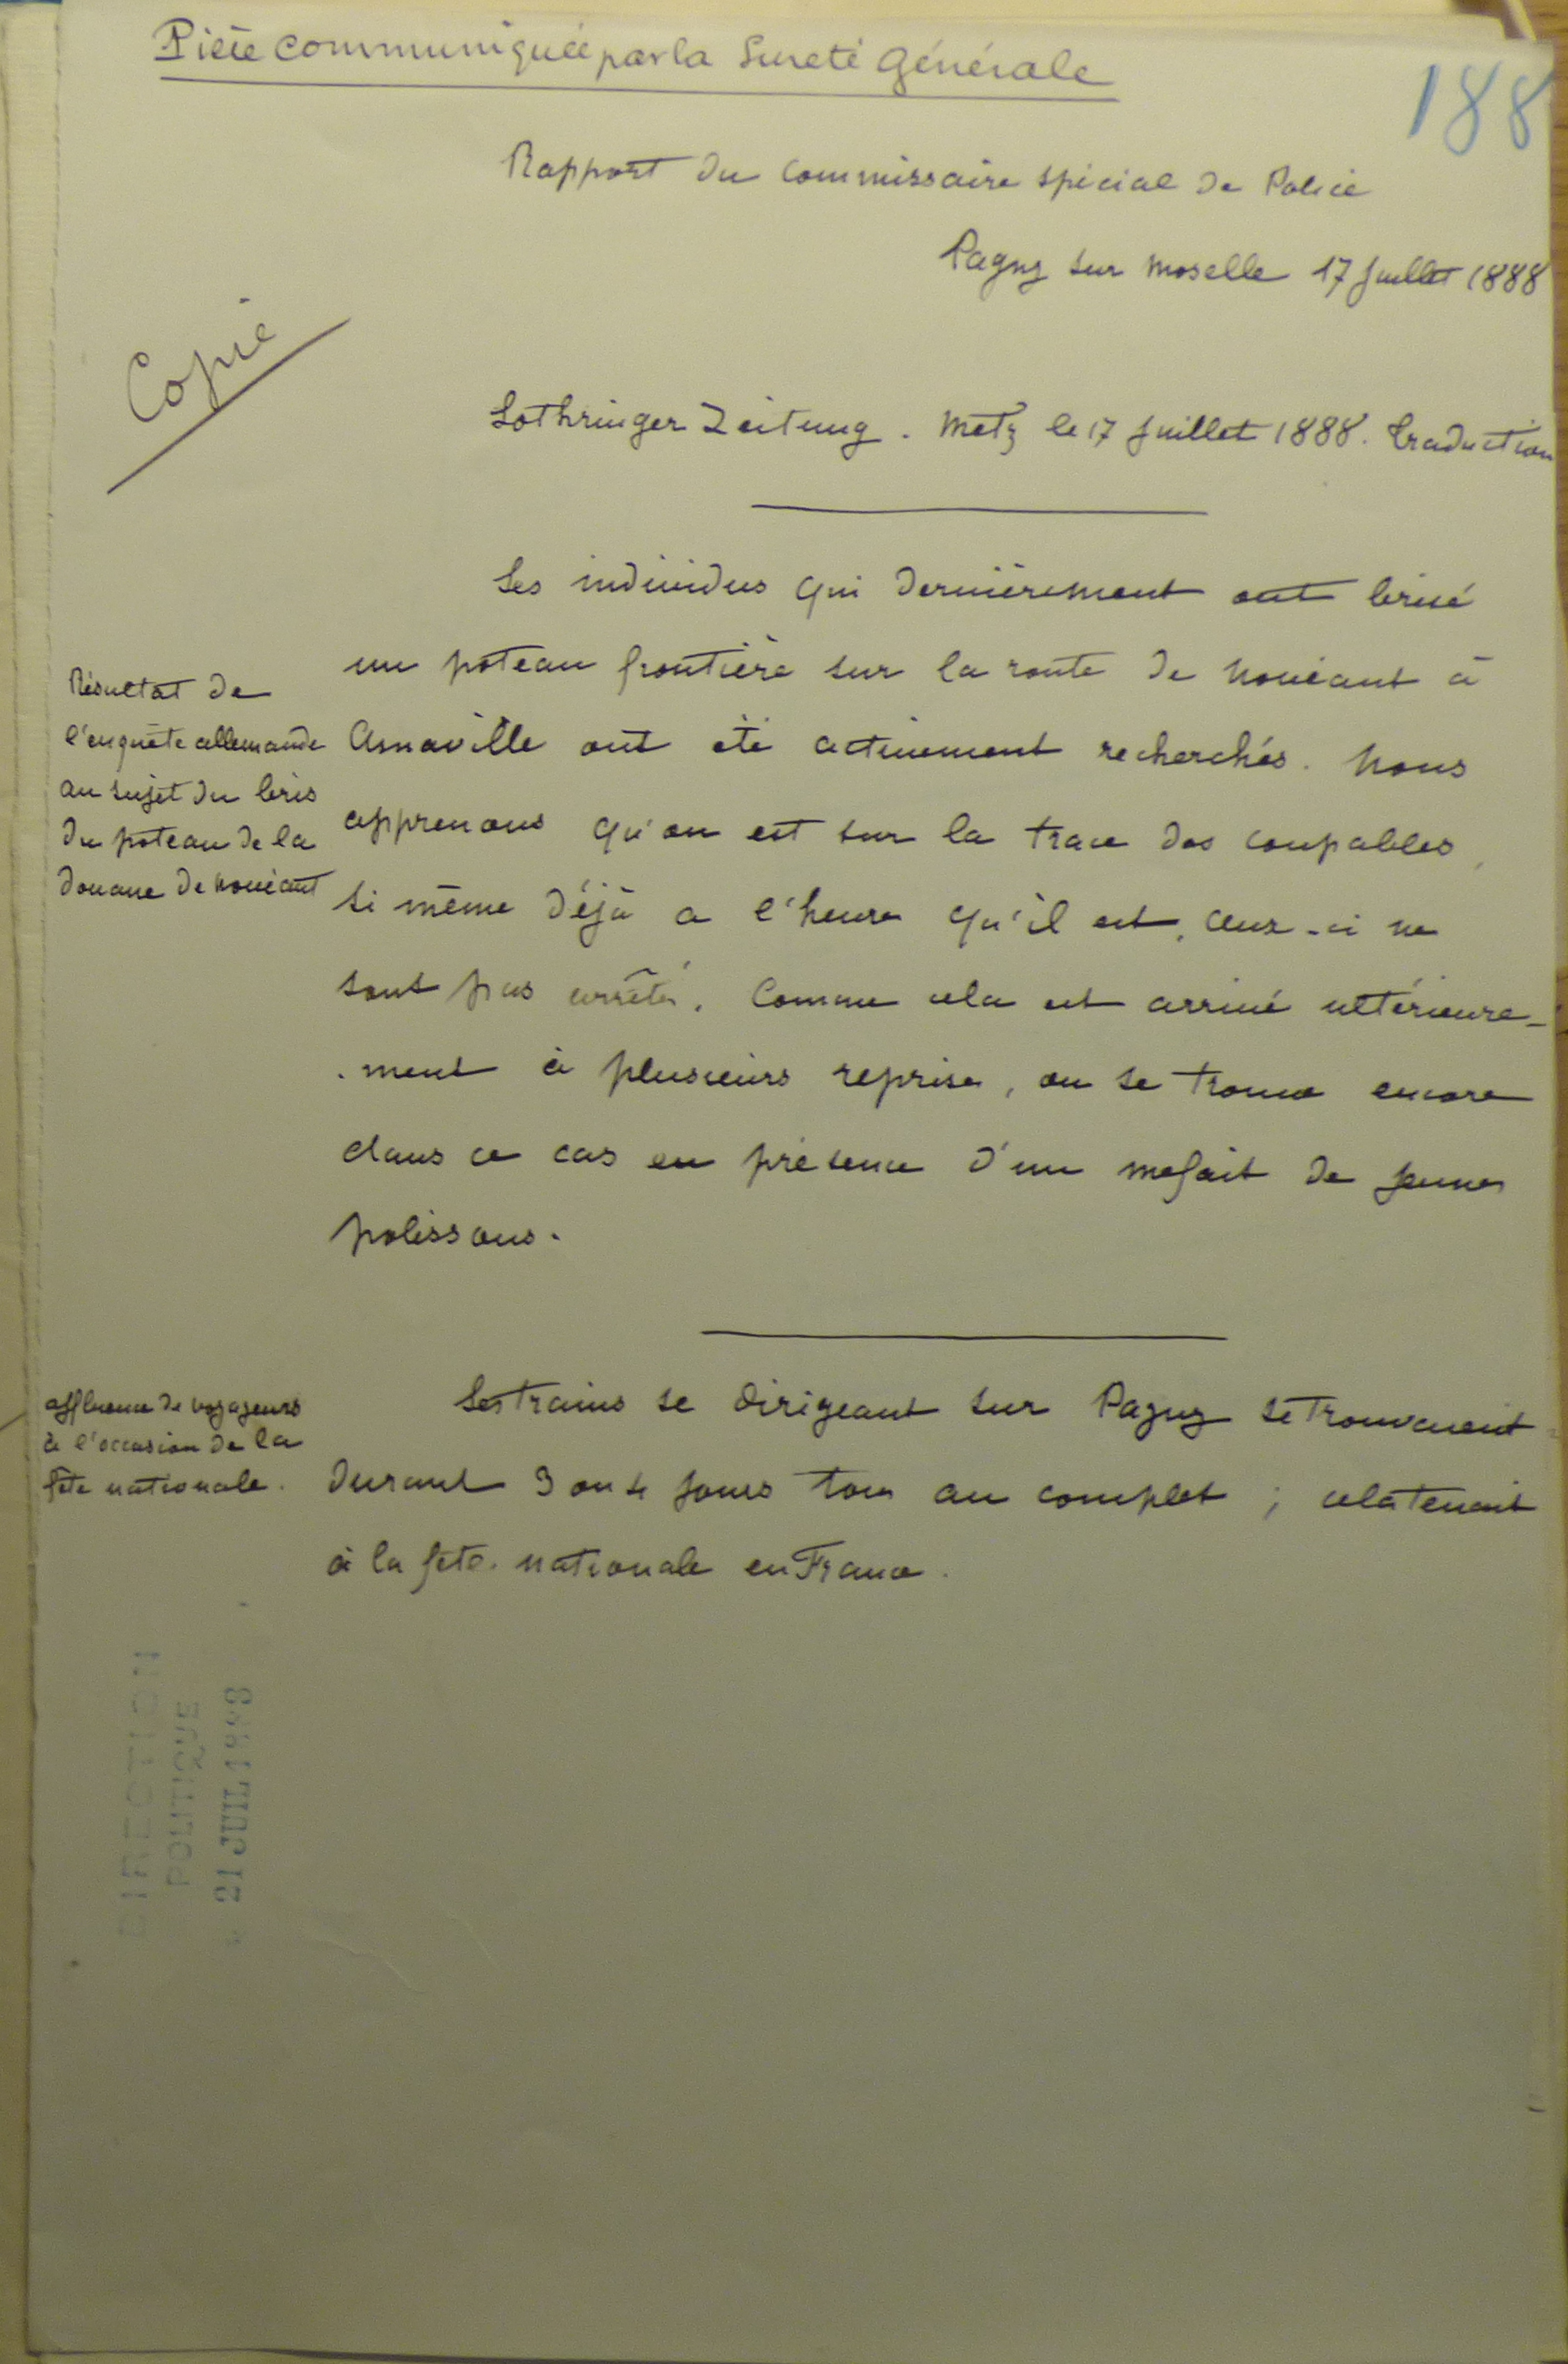 Pièce communiquée par la Sureté Générale
188
Rapport du Commissaire spécial de Police
Pagny sur Moselle 17 Juillet 1888
Copie
Lothringer Zeitung. Metz le 17 Juillet 1888. Traduction
Les individus qui dernièrement ont brisé
un poteau frontière sur la route de Novéant à
Arnaville ont été activement recherchés. Nous
apprenons qu'on est sur la trace des coupables,
si même déjà a l'heure qu'il est, ceux-ci ne
sont pas arrêtés. Comme cela est arrivé ultérieure-
-ment à plusieurs reprises, on se trouve encore
dans ce cas en présence d'un mefait de jeunes
polissons.
Résultat de
l'enquête allemande
au sujet du bris
du poteau de la
douane de Novéant
Les trains se dirigeant sur Pagny se trouvaient
durant 3 ou 4 jours tous au complet ; cela tenait
à la fête nationale en France.
affluence de voyageurs
à l'occasion de la
fête nationale.
DIRECTION
POLITIQUE
21 JUIL 1888